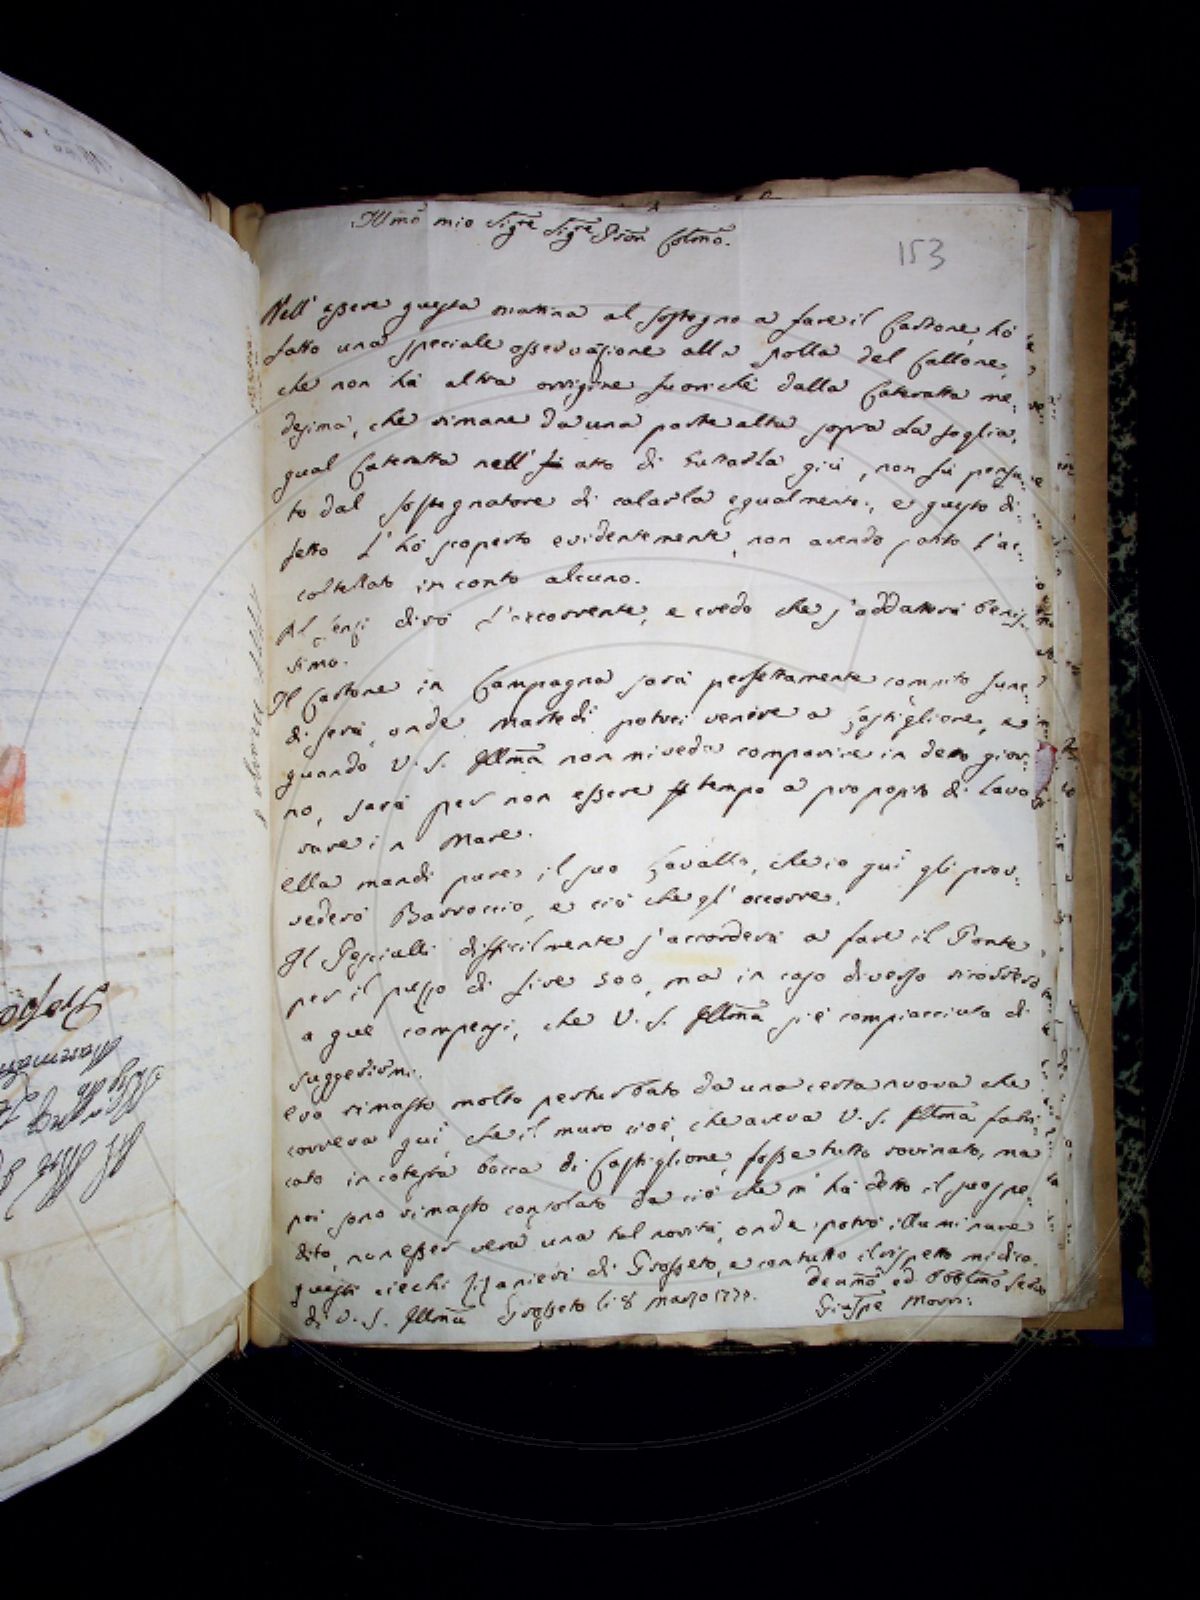 Illmo mio Sigre Sigre Pron Colmo.
153
Nell' essere questa mattina al sostegno a fare il Castone, hò
fatto una speciale osservazione alla polla del Callone,
che non hà altra origine fuoriché dalla Cateratta me-
desima, che rimane da una parte alta sopra la soglia,
qual Cateratta nell' atto di buttarla giù, non fù pensa-
to dal sostegnatore di calarla egualmente, e questo di-
fetto l' hò scoperto evidentemente, non avendo fatto l'ac-
coltellato in conto alcuno.
Al dirò l'occorrente, e credo che s'addatterà benis-
simo.
Il Castone in Campagna sarà perfettamente compito lune-
di sera, onde Martedi potrei venire a Castiglione, e
quando V. S. Illma non mi veda comparire in detto gior-
no, sarà per non essere tempo a proposito di lavo
rare in Mare.
Ella mandi pure il suo Cavallo, che io qui gli prov-
vederò Barroccio, e ciò che gl' occorre.
Il Pescialli difficilmente s'accorderà a fare il Ponte
per il prezzo di Lire 500, ma in caso diverso ricorrerò
a que compensi, che V. S. Illma si è compiacciuta di
suggerirmi.
ero rimasto molto perturbato da una certa nuova che
correva qui, che il muro cioè, che aveva V. S. Illma fabri-
cato in cotesta bocca di Castiglione, fosse tutto rovinato, ma
poi sono rimasto consolato da ciò che m' hà detto il suo spe-
dito, non esser vera una tal novità, onde potrò illuminare
questi ciechi Zizanieri di Grosseto, e con tutto il rispetto mi dico
di V. S. Illma Grosseto li 8 Marzo
Devmo ed Obblmo Servo
Giuspe Morri